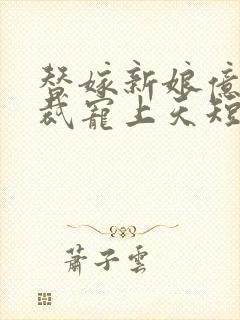 替嫁新娘億
裁寵上天短
蕭子雲